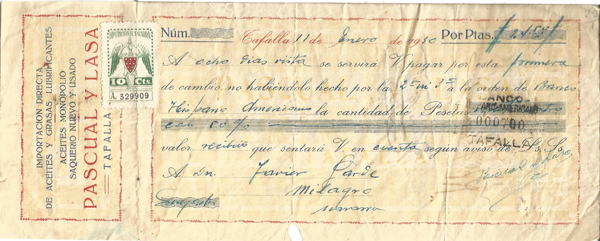 IMPORTACION DIRECTA
DE ACEITES Y GRASAS LUBRIFICANTES
ACEITES MONOPOLIO
SAQUERIO NUEVO Y USADO
PASCUAL Y LASA
TAFALLA
10 Cts
A. 329909
Núm.
Tafalla 11 de Enero de 1930 Por Ptas.
A ocho días vista se servirá V pagar por esta primera
de cambio no habiéndolo hecho por la 2ª ni 3ª a la orden de Banco
Hispano Americano la cantidad de Pesetas
con 50/
000700
TAFALLA
valor recibido que sentará V. en cuenta según aviso de S. S.
A Dn. Javier Jarde
Milagro
Navarra